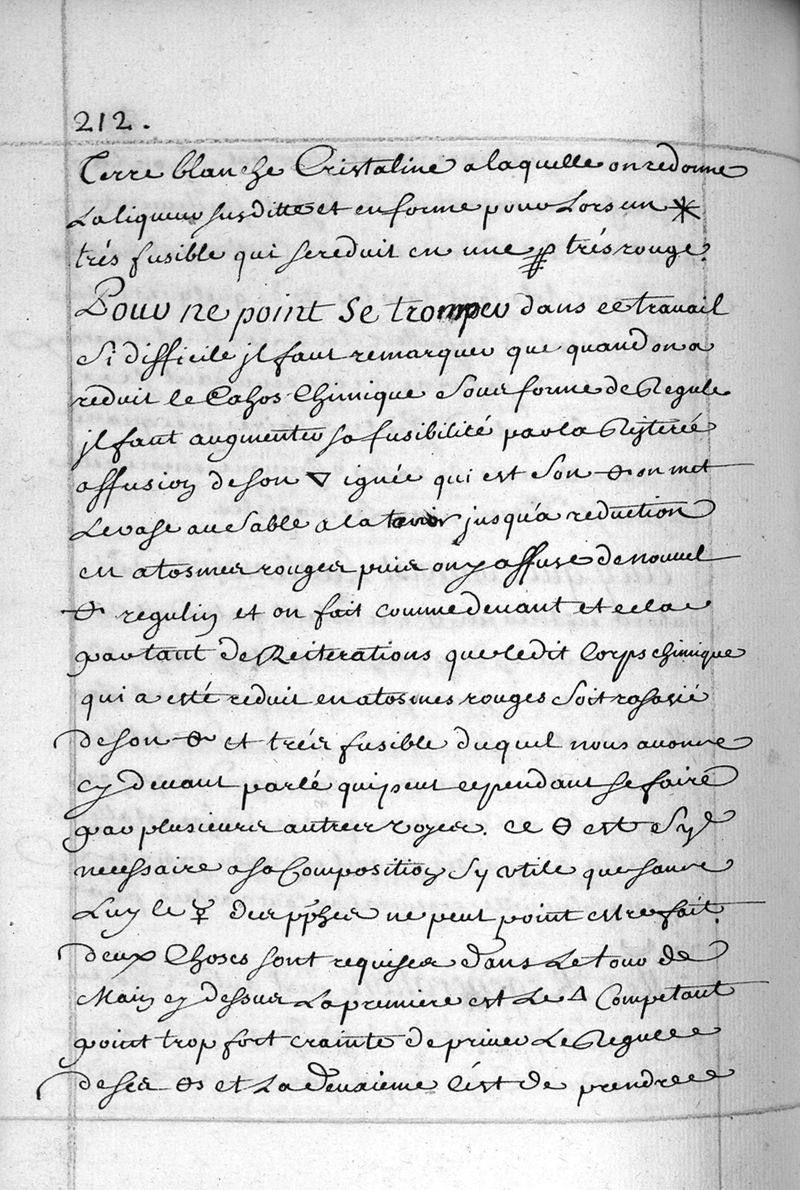 212.
Terre blanche Cristaline a laquelle on redonne
La liqueur susditte et en forme pour Lors un ✳
trés fusible qui se reduit en une trés rouge.
Pour ne point se tromper dans ce travail
Si difficile jl faut remarquer que quand on a
reduit le Cahos Chimique Sous forme de Regule
jl faut augmenter sa fusibilité par la Rejterée
affusion de son 🜄 ignée qui est Son 🜔 on met
Le vase au Sable a la jusqu'a reduction
en atosmes rouges puis on y affuse de nouvel
🜔 regulin et on fait comme devant et cela
par tant de Reiterations que ledit Corps chimique
qui a esté reduit en atosmes rouges Soit rasasié
de son 🜔 et trés fusible duquel nous avons
cy devant parlé qui peut cependant se faire
par plusieurs autres voyes. ce 🜔 est Sy
necessaire a sa Composition Sy utile que sans
Luy le ☿ des pphes ne peut point estre fait.
deux Choses sont requises dans Le tour de
Main cy dessus La premiere est Le 🜂 Competant
point trop fort crainte de priver Le Regule
de ses 🜔s et La deuxieme C'est de prendre